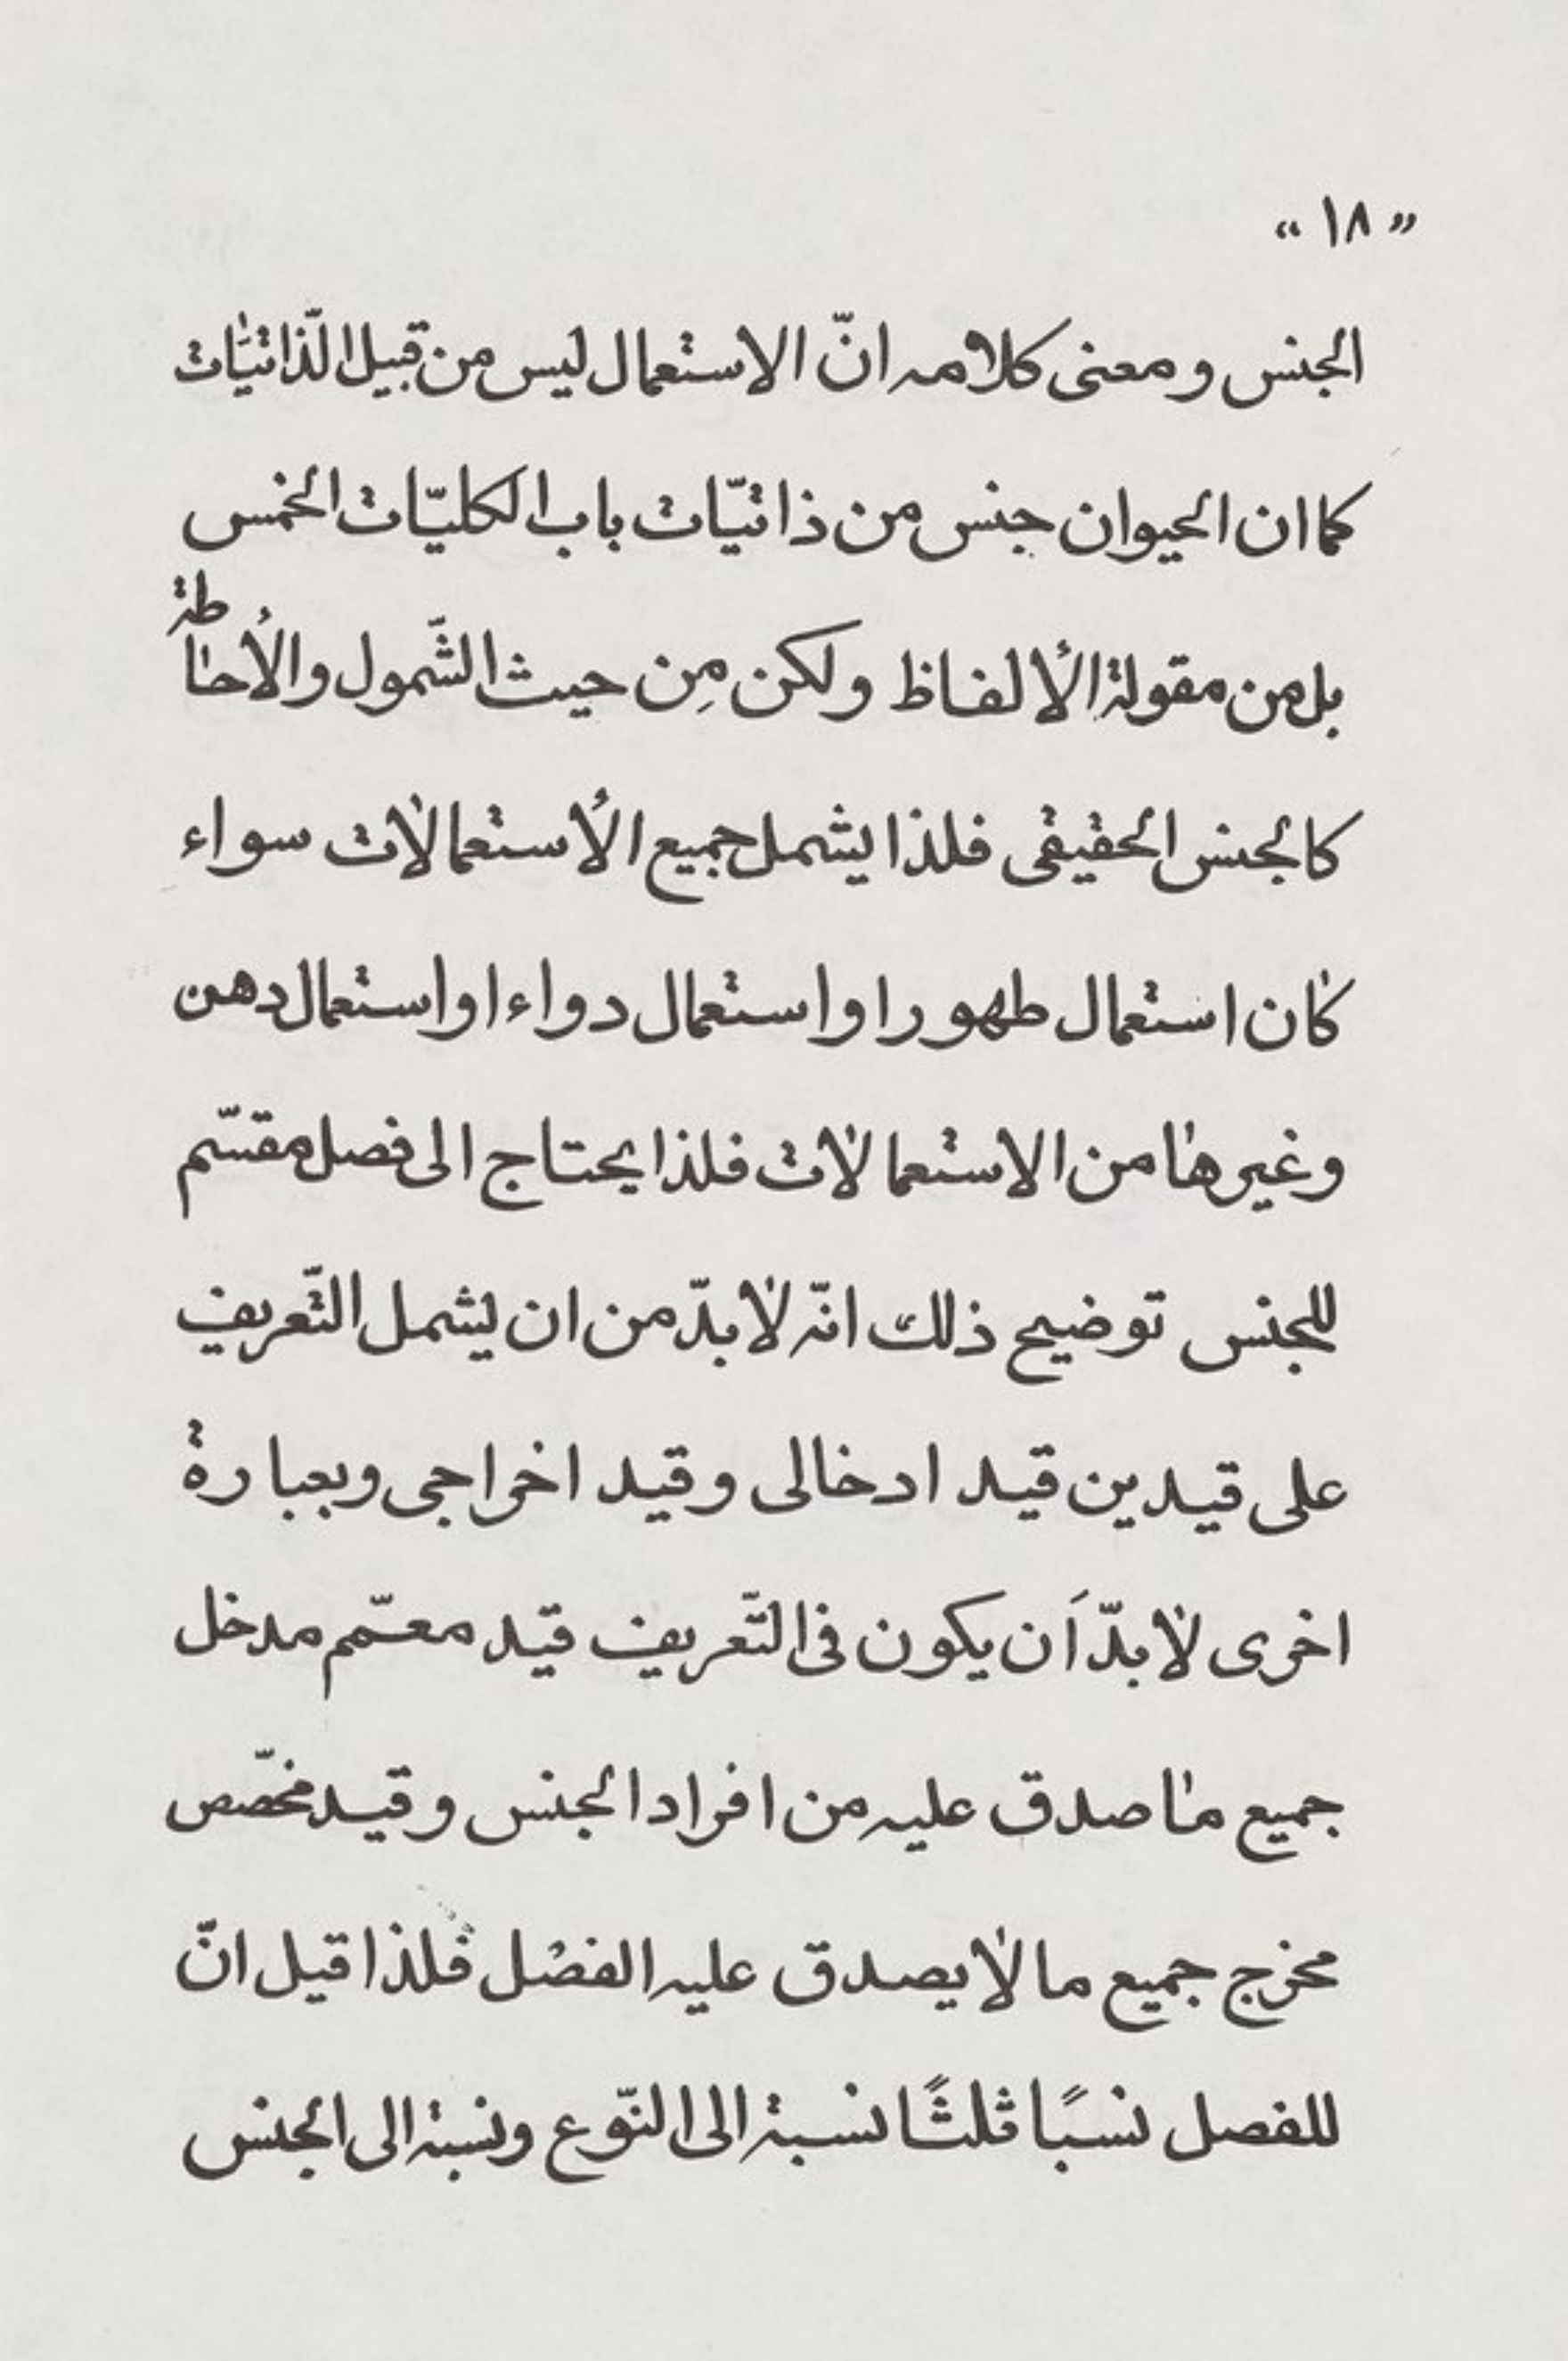 « ١٨ »
الجنس و معنى كلامه انّ الاستعمال ليس من قبيل الذّاتيّات
كما ان الحيوان جنس من ذاتيّات باب الكليّات الخمس
بل من مقولة الألفاظ ولكن مِن حيث الشّمول والأحاطة
كالجنس الحقيقى فلذا يشمل جميع الأستعمالات سواء
كان استعمال طهور او استعمال دواء او استعمال دهن
وغيرها من الاستعمالات فلذا يحتاج الى فصل مقسّم
للجنس توضيح ذلك انّه لابدّ من ان يشمل التّعريف
على قيدين قيد ادخالى وقيد اخراجى وبعبارة
اخرى لابدّ اَن يكون فى التّعريف قيد معمّم مدخل
جميع ما صدق عليه من افراد الجنس وقيد مخصّص
مخرج جميع ما لا يصدق عليه الفصل فلذا قيل انّ
للفصل نسبًا ثلثًا نسبة الى النّوع ونسبة الى الجنس